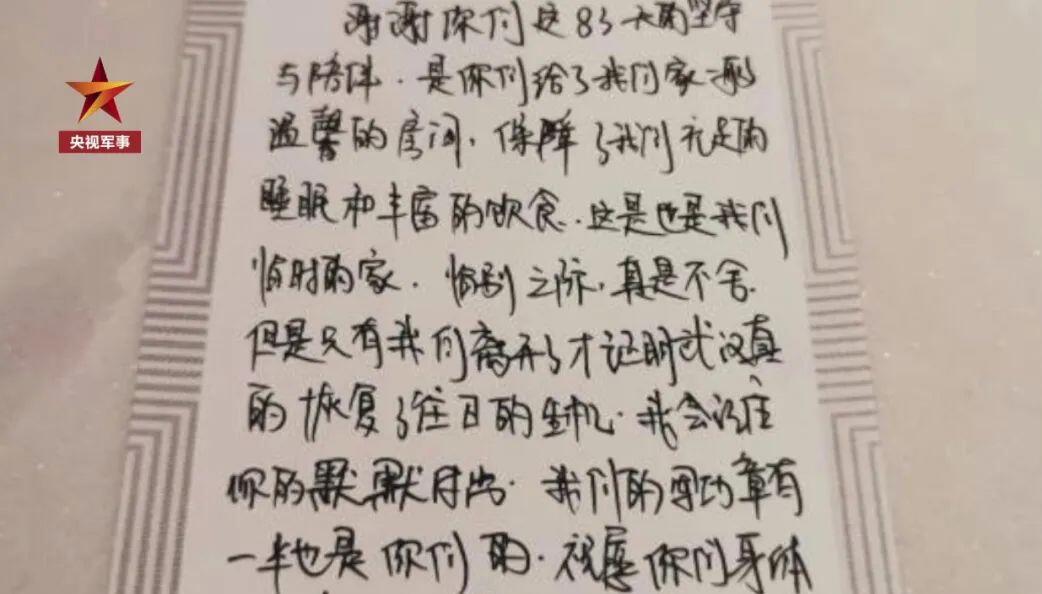 谢谢你们这83天的坚守
与陪伴.是你们给了我们家一般
温馨的房间,保障了我们充足的
睡眠和丰富的饮食..这是也是我们
临时的家.临别之际,真是不舍.
但是只有我们离开了才证明武汉真
的恢复了往日的生机.我会记住
你的默默付出.我们的军功章有
一半也是你们的.祝愿你们身体
央视军事